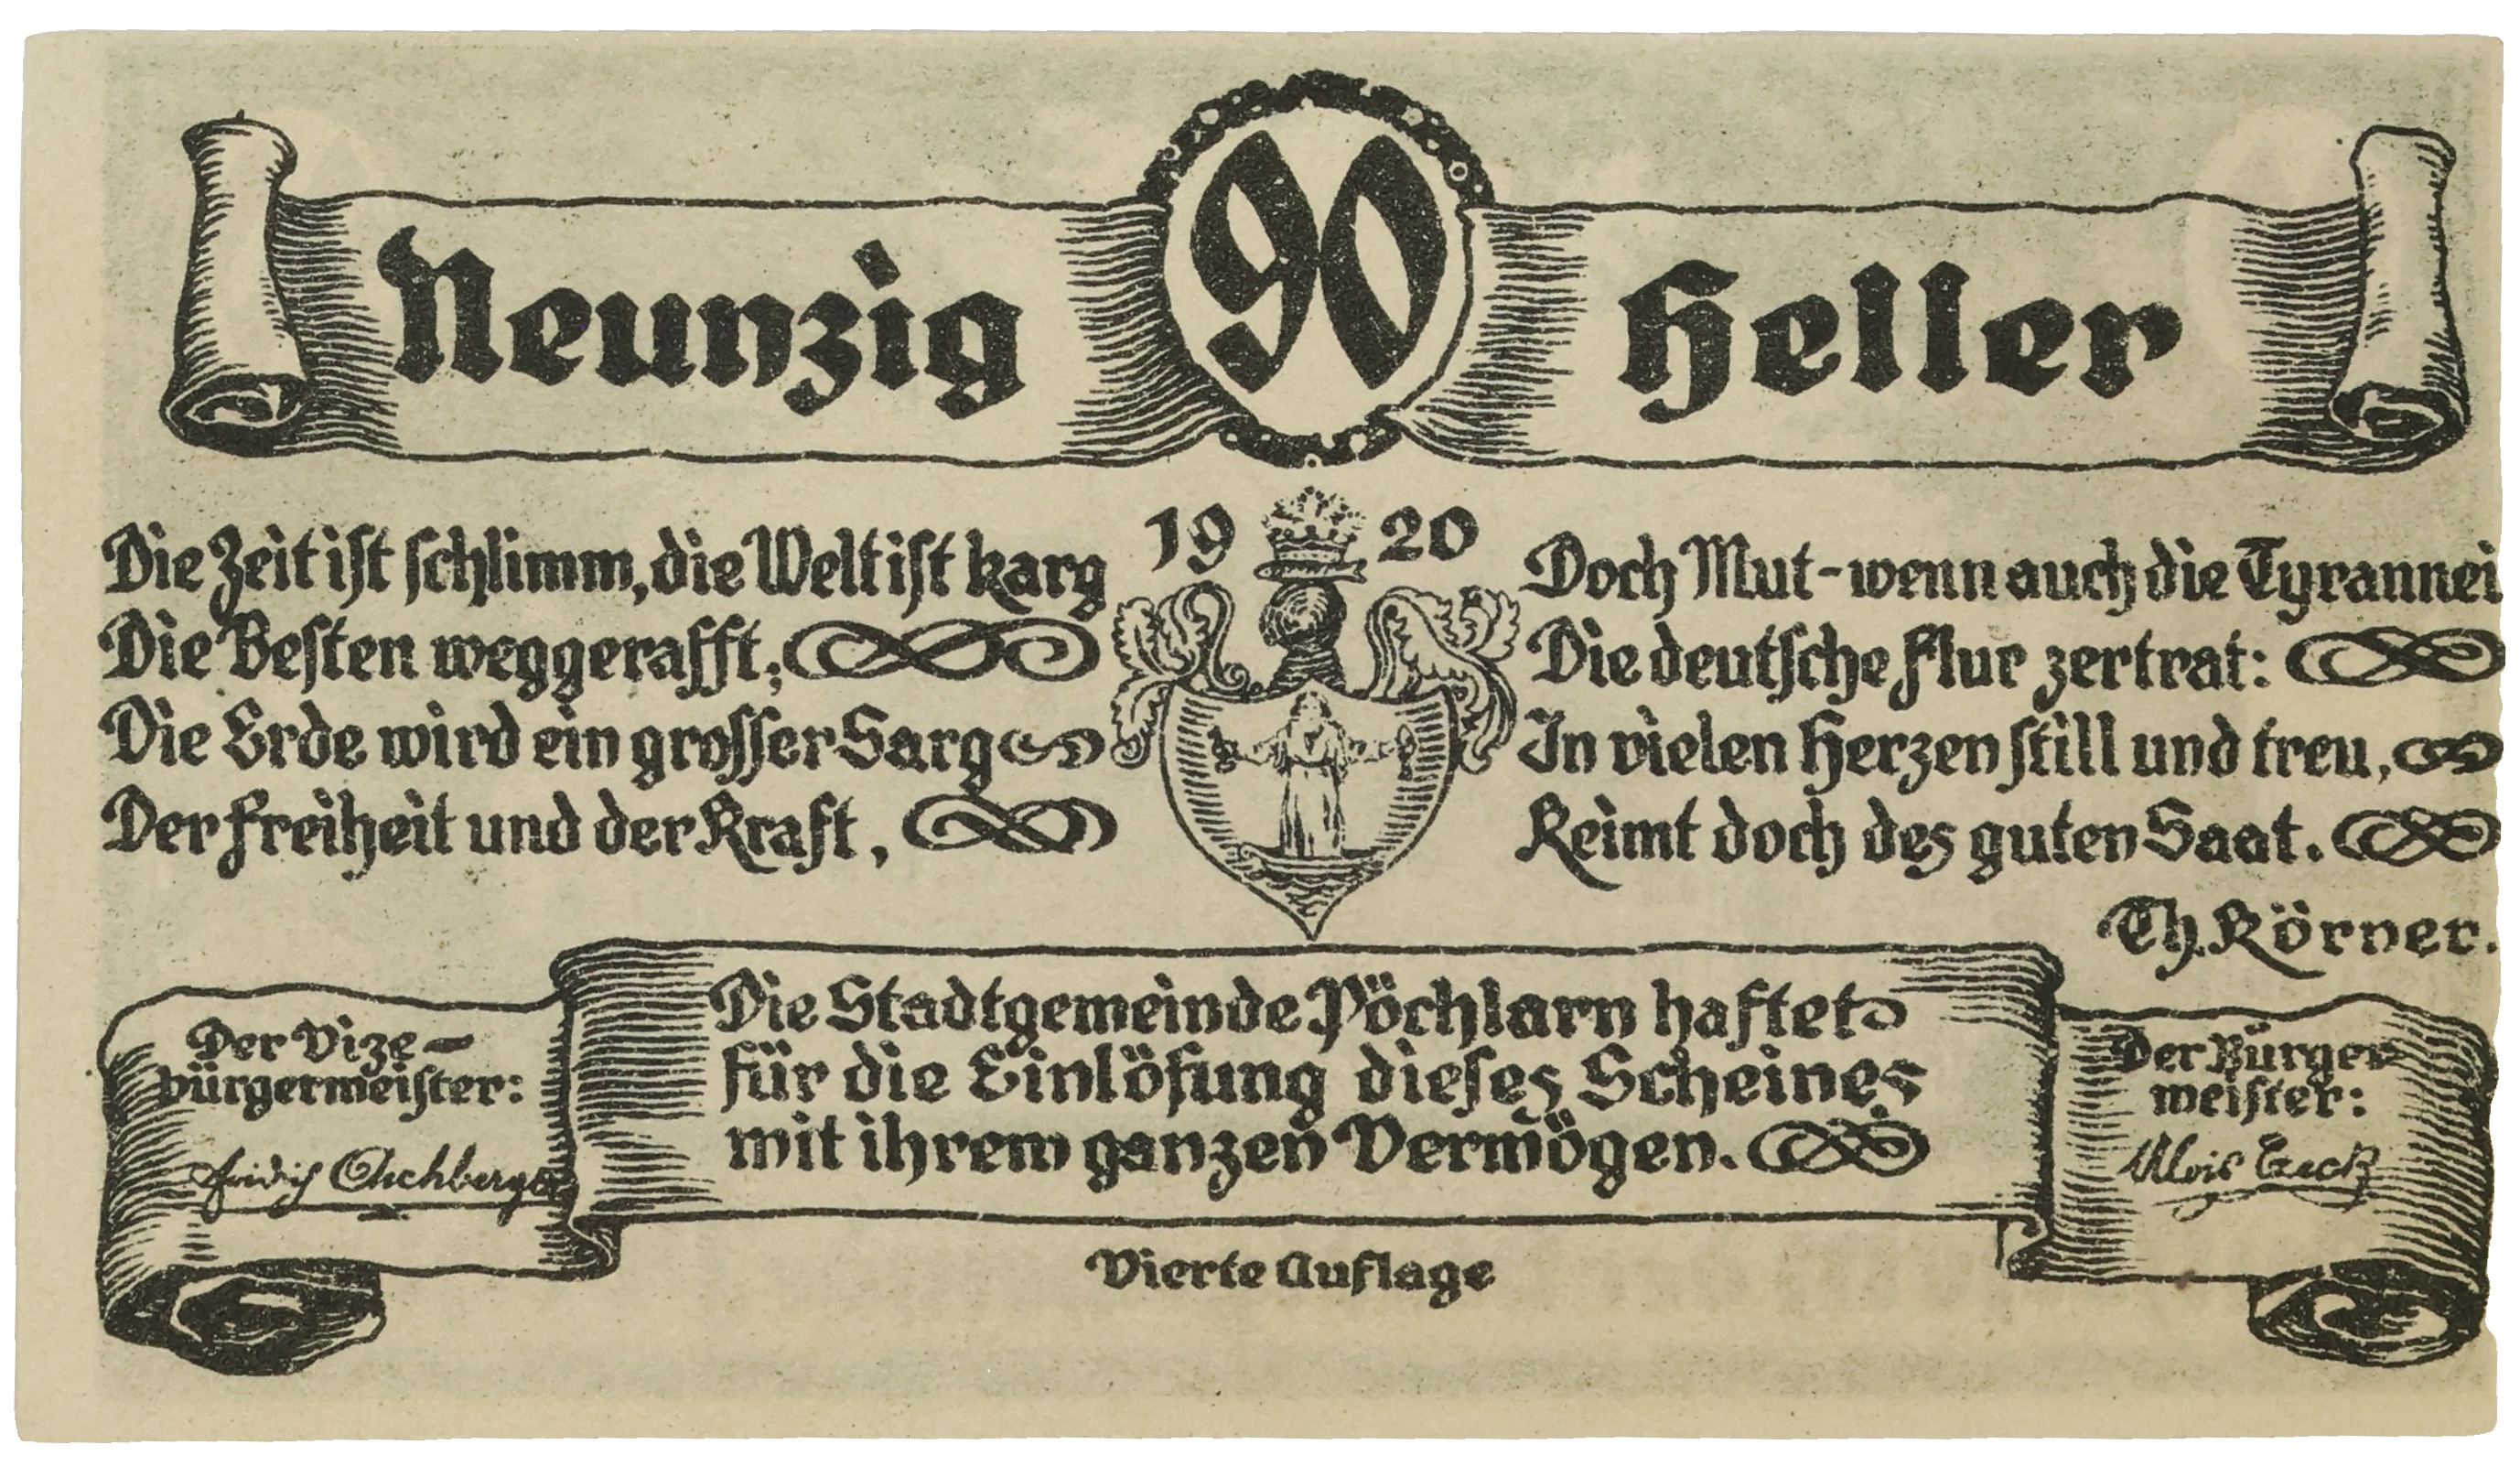 Neunzig 90 Heller
1920
Die Zeit ist schlimm, die Welt ist karg
Die Besten weggerafft;
Die Erde wird ein grosser Sarg
Der Freiheit und der Kraft,
Doch Mut - wenn auch die Tyrannei
Die deutsche Flur zertrat:
In vielen Herzen still und treu,
Keimt doch des guten Saat.
Th. Körner.
Der Vize-
bürgermeister:
Die Stadtgemeinde Pöchlarn haftet
für die Einlösung dieses Scheines
mit ihrem ganzen Vermögen.
Der Bürger
meister:
Alois
Vierte Auflage